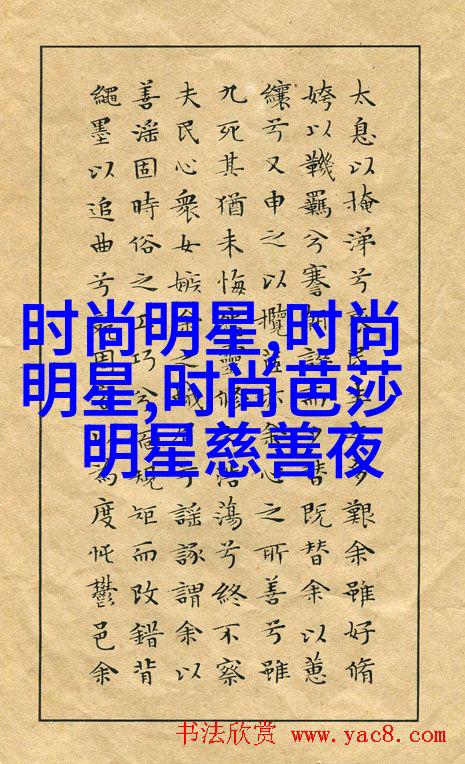 太息以掩涕兮哀民生之多艱余雖好脩
姱以鞿羈兮謇朝誶而夕替既替余以蕙
纕兮又申之以攬茞亦余心之所善兮雖
九死其猶未悔怨靈脩之浩蕩兮終不察
夫民心衆女嫉余之蛾眉兮謠諑謂余以
善淫固時俗之工巧兮偭規矩而改錯背
繩墨以追曲兮競周容以為度忳鬱邑余
时尚明星,时尚
明星,时尚芭莎
明星慈善夜
书法欣赏 www.yac8.com